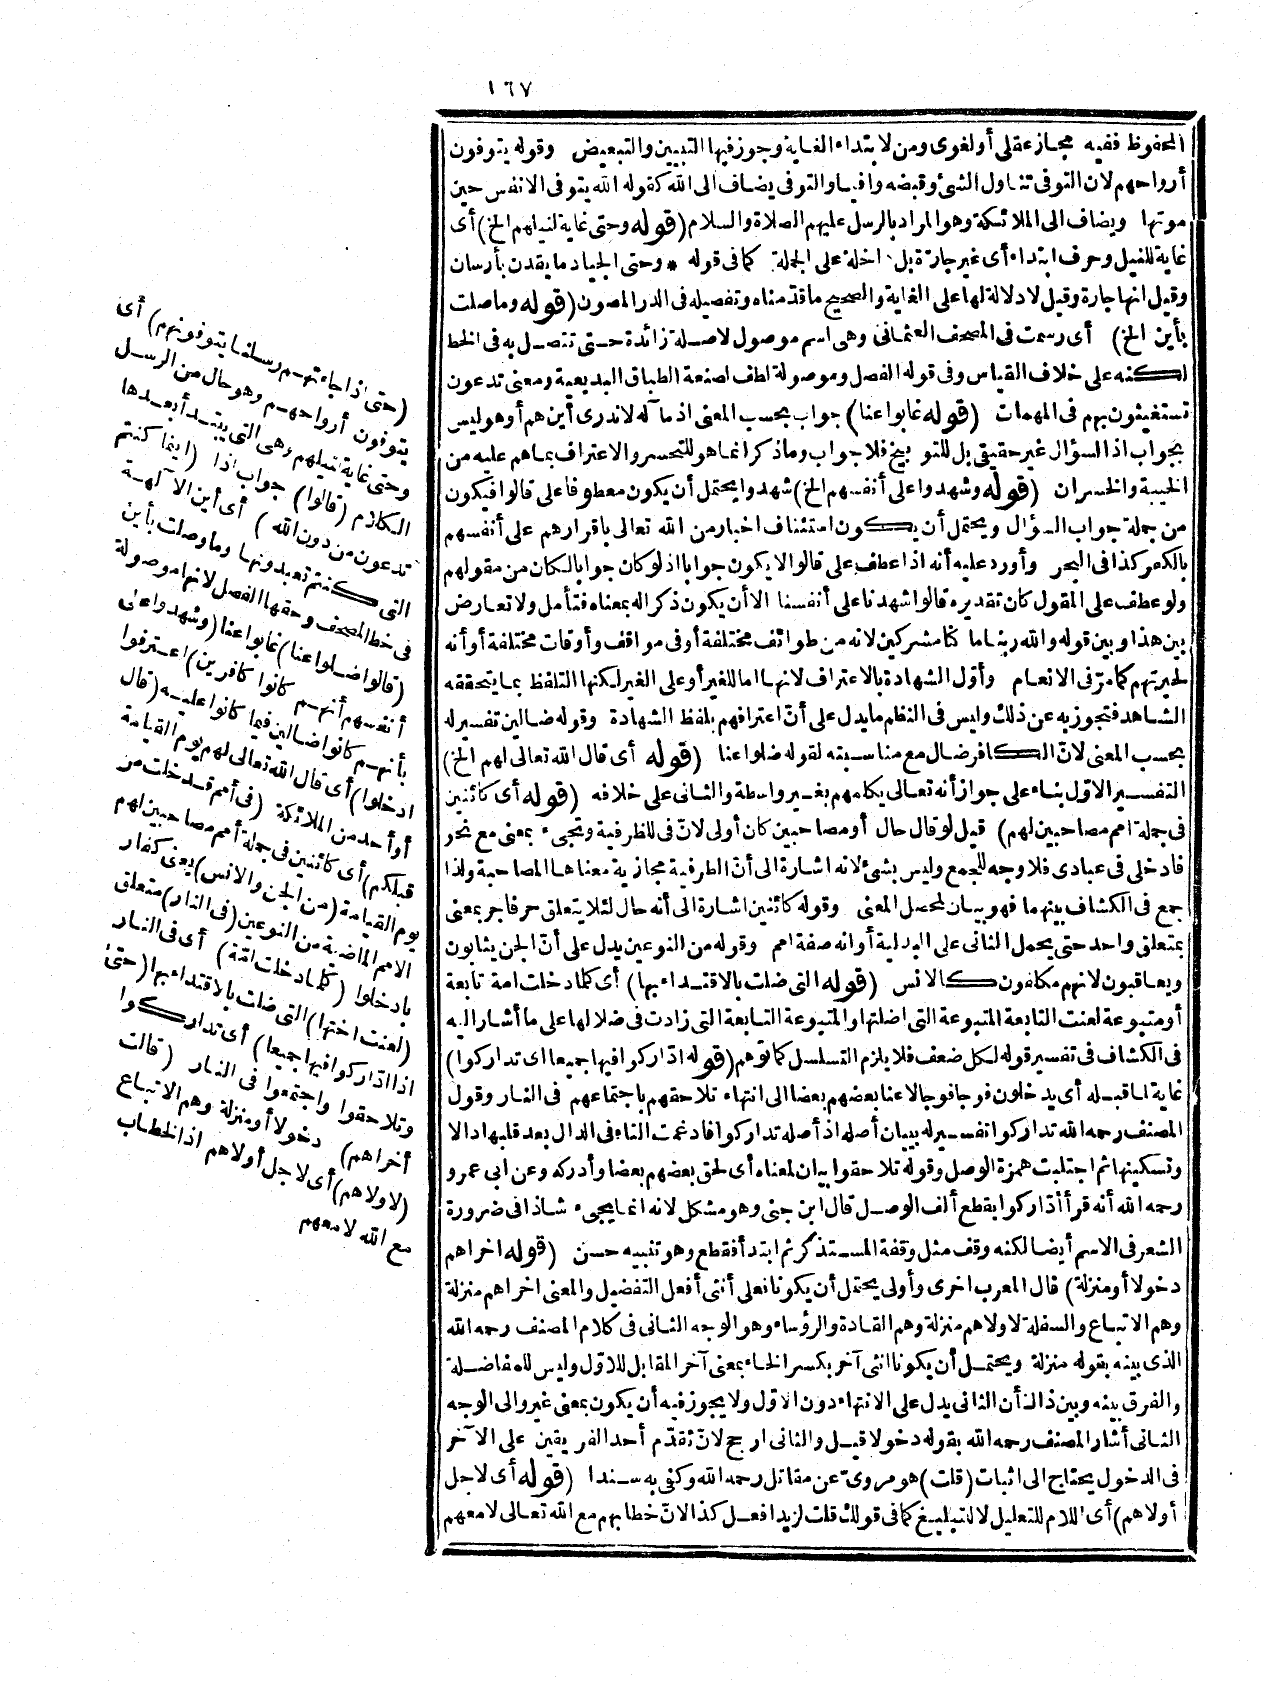 ١٦٧
المحفوظ ففيه مجاز عقلى أو لغوى ومن لابتداء الغاية وجوز فيها التبيين والتبعيض وقوله يتوفون
أرواحهم لان التوفى تناول الشئ وقبضه وافيا والتوفى يضاف الى الله كقوله الله يتوفى الانفس حين
موتها ويضاف الى الملائكة وهو المراد بالرسل عليهم الصلاة والسلام (قوله وحتى غاية لنيلهم الخ) أى
غاية للنيل وحرف ابتداء أى غير جارة بل داخلة على الجملة كما فى قوله * وحتى الجياد ما يقدن بأرسان
وقيل انها جارة وقيل لا دلالة لها على الغاية والصحيح ما قدمناه وتفصيله فى الدر المصون (قوله وما صلت
بأين الخ) أى رسمت فى المصحف العثمانى وهى اسم موصول لا صلة زائدة حتى تتصل به فى الخط
لكنه على خلاف القياس وفى قوله الفصل وموصولة لطف لصنعة الطباق البديعية ومعنى تدعون
تستغيثون بهم فى المهمات (قوله غابوا عنا) جواب بحسب المعنى اذ مآله لا ندرى أين هم أو هو ليس
بجواب اذ السؤال غير حقيقى بل للتوبيخ فلا جواب وما ذكر انما هو للتحسر والاعتراف بما هم عليه من
الخيبة والخسران (قوله وشهدوا على أنفسهم الخ) شهدوا يحتمل أن يكون معطوفا على قالوا فيكون
من جملة جواب السؤال ويحتمل أن يكون استئناف اخبار من الله تعالى باقرارهم على أنفسهم
بالكفر كذا فى البحر وأورد عليه أنه اذا عطف على قالوا لا يكون جوابا اذ لو كان جوابا لكان من مقولهم
ولو عطف على المقول كان تقديره قالوا شهدنا على أنفسنا الا أن يكون ذكر اله بمعناه فتأمل ولا تعارض
بين هذا وبين قوله والله ربنا ما كنا مشركين لانه من طوائف مختلفة أو فى مواقف وأوقات مختلفة أو أنه
لحيرتهم كما مر فى الانعام وأول الشهادة بالاعتراف لانها اما للغير أو على الغير لكنها التلفظ بما يتحققه
الشاهد فتجوز به عن ذلك وليس فى النظم ما يدل على أن اعترافهم بلفظ الشهادة وقوله ضالين تفسير له
بحسب المعنى لان الكافر ضال مع مناسبته لقوله ضلوا عنا (قوله أى قال الله تعالى لهم الخ)
التفسير الاول بناء على جواز أنه تعالى يكلمهم بغير واسطة والثانى على خلافه (قوله أى كائنين
فى جملة امم مصاحبين لهم) قيل لو قال حال أو مصاحبين كان أولى لان فى للظرفية وتجىء بمعنى مع نحو
فادخلى فى عبادى فلا وجه للجمع وليس بشئ لانه اشارة الى أن الظرفية مجازية معناها المصاحبة ولذا
جمع فى الكشاف بينهما فهو بيان لمحصل المعنى وقوله كائنين اشارة الى أنه حال لئلا يتعلق حرفا جر بمعنى
بمتعلق واحد حتى يحمل الثانى على البدلية أو انه صفة امم وقوله من النوعين يدل على أن الجن يثابون
ويعاقبون لانهم مكلفون كالانس (قوله التى ضلت بالاقتداء بها) أى كلما دخلت امة تابعة
أو متبوعة لعنت التابعة المتبوعة التى اضلتها والمتبوعة التابعة التى زادت فى ضلالها على ما أشار اليه
فى الكشاف فى تفسير قوله لكل ضعف فلا يلزم التسلسل كما توهم (قوله اذاركوا فيها جميعا اى تداركوا)
غاية لما قبله أى يدخلون فوجا فوجا لاعنا بعضهم بعضا الى انتهاء تلاحقهم باجتماعهم فى النار وقول
المصنف رحمه الله تداركوا تفسير له ببيان أصله اذ أصله تداركوا فادغمت التاء فى الدال بعد قلبها دالا
وتسكينها ثم اجتلبت همزة الوصل وقوله تلاحقوا بيان لمعناه أى لحق بعضهم بعضا وأدركه وعن ابى عمرو
رحمه الله أنه قرأ أذاركوا بقطع ألف الوصل قال ابن جنى وهو مشكل لانه انما يجىء شاذا فى ضرورة
الشعر فى الاسم أيضا لكنه وقف مثل وقفة المستذكر ثم ابتدأ فقطع وهو تنبيه حسن (قوله اخراهم
دخولا أو منزلة) قال المعرب اخرى وأولى يحتمل أن يكونا فعلى أنثى أفعل التفضيل والمعنى اخراهم منزلة
وهم الاتباع والسفلة لاولاهم منزلة وهم القادة والرؤساء وهو الوجه الثانى فى كلام المصنف رحمه الله
الذى بينه بقوله منزلة ويحتمل أن يكونا انثى آخر بكسر الخاء بمعنى آخر المقابل للاول وليس للمفاضلة
والفرق بينه وبين ذاك أن الثانى يدل على الانتهاء دون الاول ولا يجوز فيه أن يكون بمعنى غير والى الوجه
الثانى أشار المصنف رحمه الله بقوله دخولا قيل والثانى ارجح لان تقدم أحد الفريقين على الآخر
فى الدخول يحتاج الى اثبات (قلت) هو مروى عن مقاتل رحمه الله وكفى به سندا (قوله أى لاجل
أولاهم) أى اللام للتعليل لا للتبليغ كما فى قولك قلت لزيد افعل كذا لان خطابهم مع الله تعالى لا معهم
(حتى اذا جاءتهم رسلنا يتوفونهم) أى
يتوفون أرواحهم وهو حال من الرسل
وحتى غاية لنيلهم وهى التى يبتدأ بعدها
الكلام (قالوا) جواب اذا (اينما كنتم
تدعون من دون الله) أى أين الآلهة
التى كنتم تعبدونها وما وصلت بأين
فى خط المصحف وحقها الفصل لانها موصولة
(قالوا ضلوا عنا) غابوا عنا (وشهدوا على
أنفسهم أنهم كانوا كافرين) اعترفوا
بأنهم كانوا ضالين فيما كانوا عليه (قال
ادخلوا) أى قال الله تعالى لهم يوم القيامة
أو أحد من الملائكة (فى أمم قد خلت من
قبلكم) أى كائنين فى جملة أمم مصاحبين لهم
يوم القيامة (من الجن والانس) يعنى كفار
الامم الماضية من النوعين (فى النار) متعلق
بادخلوا (كلما دخلت امة) أى فى النار
(لعنت اختها) التى ضلت بالاقتداء بها (حتى
اذا اذاركوا فيها جميعا) أى تداركوا
وتلاحقوا واجتمعوا فى النار (قالت
أخراهم) دخولا أو منزلة وهم الاتباع
(لاولاهم) أى لاجل أولاهم اذ الخطاب
مع الله لا معهم